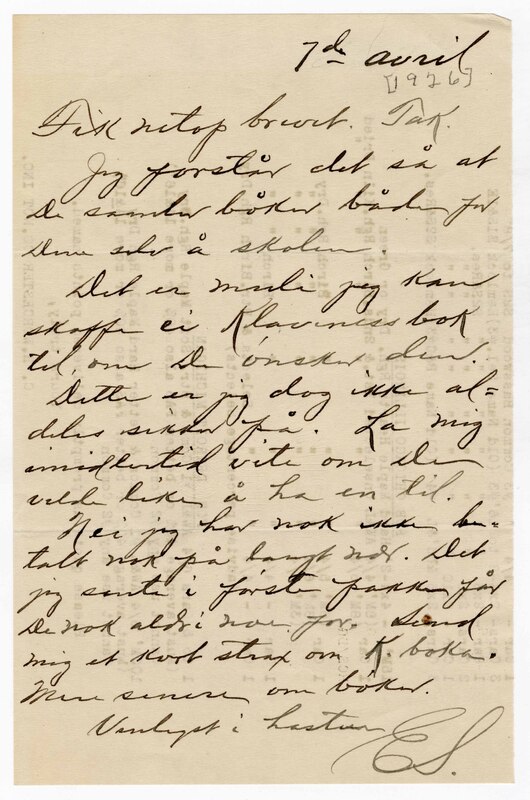 7de avril
[1926]
Fik netop brevet. Tak.
Jeg forstår det så at
De samler bøker både for
Dem selv å skolen.
Det er muli jeg kan
skaffe ei Klaveness bok
til, om De ønsker den.
Dette er jeg dog ikke al=
deles sikker på. La mig
imidlertid vite om De
vilde like å ha en til.
Nei jeg har nok ikke be=
talt nok på langt nær. Det
jeg sente i første pakken får
De nok aldri noe for. Send
mig et kort strax om K. boka.
Mere senere om bøker.
Venligst i hasten
ES.